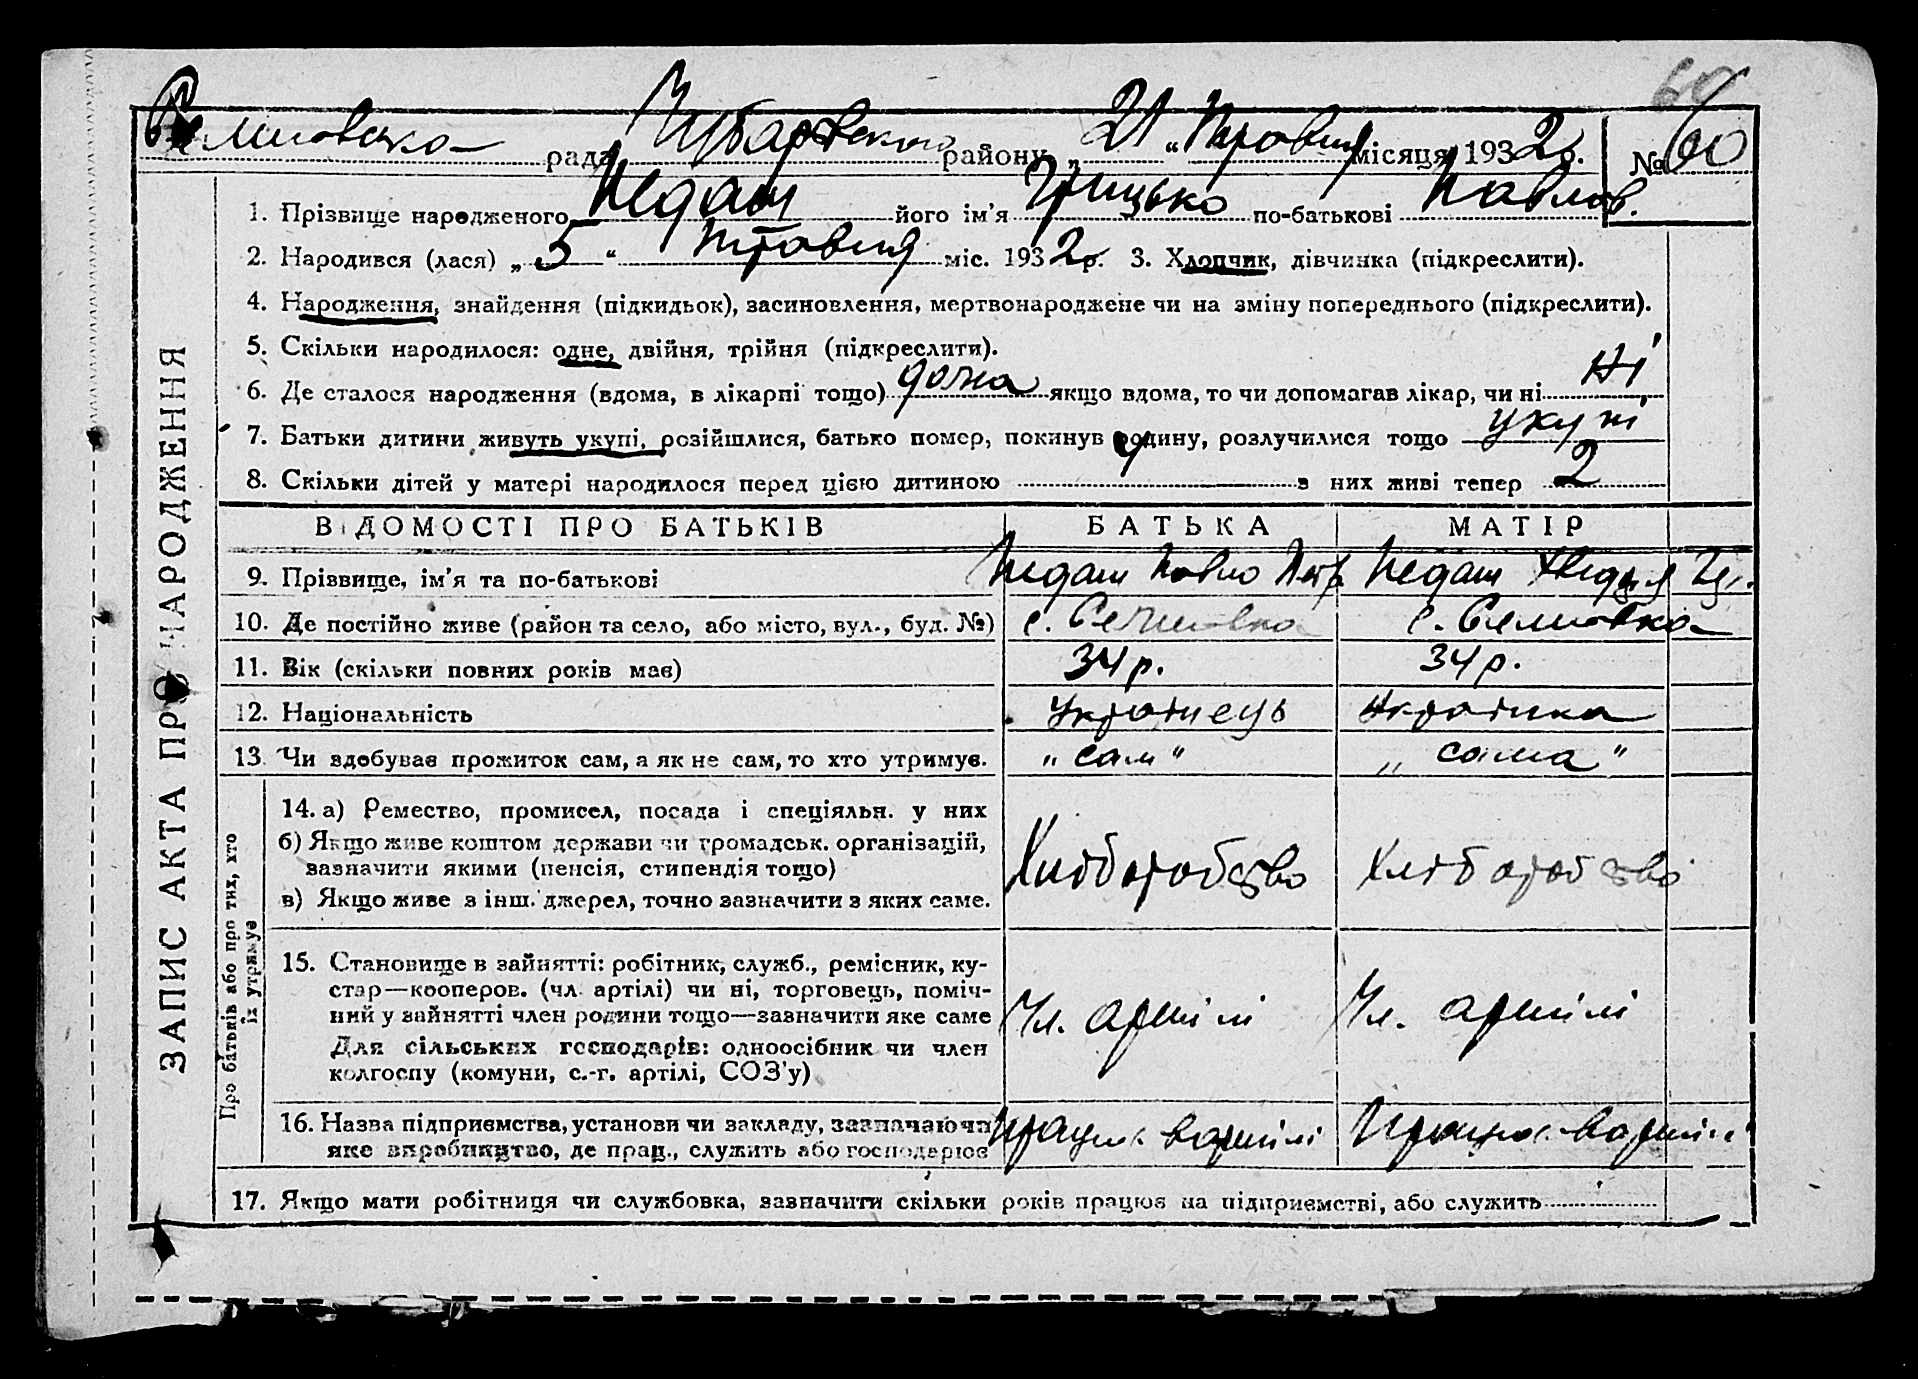 60
Семиовська рада Чубарівського району „ 21 “ Травня місяця 1932 р. № 60
1. Прізвище народженого Недаш його ім’я Грицько по-батькові Павлов.
2. Народився (лася) „ 5 “ травня міс. 1932 р. 3. Хлопчик, дівчинка (підкреслити).
4. Народження, знайдення (підкидьок), засиновлення, мертвонароджене чи на зміну попереднього (підкреслити).
5. Скільки народилося: одне, двійня, трійня (підкреслити).
6. Де сталося народження (вдома, в лікарні тощо) дома якщо вдома, то чи допомагав лікар, чи ні ні
7. Батьки дитини живуть укупі, розійшлися, батько помер, покинув родину, розлучилися тощо укупі
8. Скільки дітей у матері народилося перед цією дитиною 4 з них живі тепер 2
ВІДОМОСТІ ПРО БАТЬКІВ БАТЬКА МАТІР
9. Прізвище, ім’я та по-батькові Недаш Павло Петр Недаш Хведура Гр.
10. Де постійно живе (район та село, або місто, вул., буд. №) с. Семиовка с. Семиовка
11. Вік (скільки повних років має) 34 р. 34 р.
12. Національність Українець Українка
13. Чи здобуває прожиток сам, а як не сам, то хто утримує. „ сам “ „ сама “
14. а) Ремество, промисел, посада і спеціяльн. у них
б) Якщо живе коштом держави чи громадськ. організацій,
зазначити якими (пенсія, стипендія тощо)
Хліборобство Хліборобство
в) Якщо живе з інш. джерел, точно зазначити з яких саме.
15. Становище в зайнятті: робітник, служб., ремісник, ку-
стар—кооперов. (чл. артілі) чи ні, торговець, поміч-
ний у зайнятті член родини тощо—зазначити яке саме
Чл. артілі Чл. артілі
Для сільських господарів: одноосібник чи член
колгоспу (комуни, с.-г. артілі, СОЗ’у)
16. Назва підприємства, установи чи закладу, зазначаючи
яке виробництво, де прац., служить або господарює
Працює в артілі Працює в артілі
17. Якщо мати робітниця чи службовка, зазначити скільки років працює на підприємстві, або служить
ЗАПИС АКТА ПРО НАРОДЖЕННЯ
Про батьків або про тих, хто
їх утримує